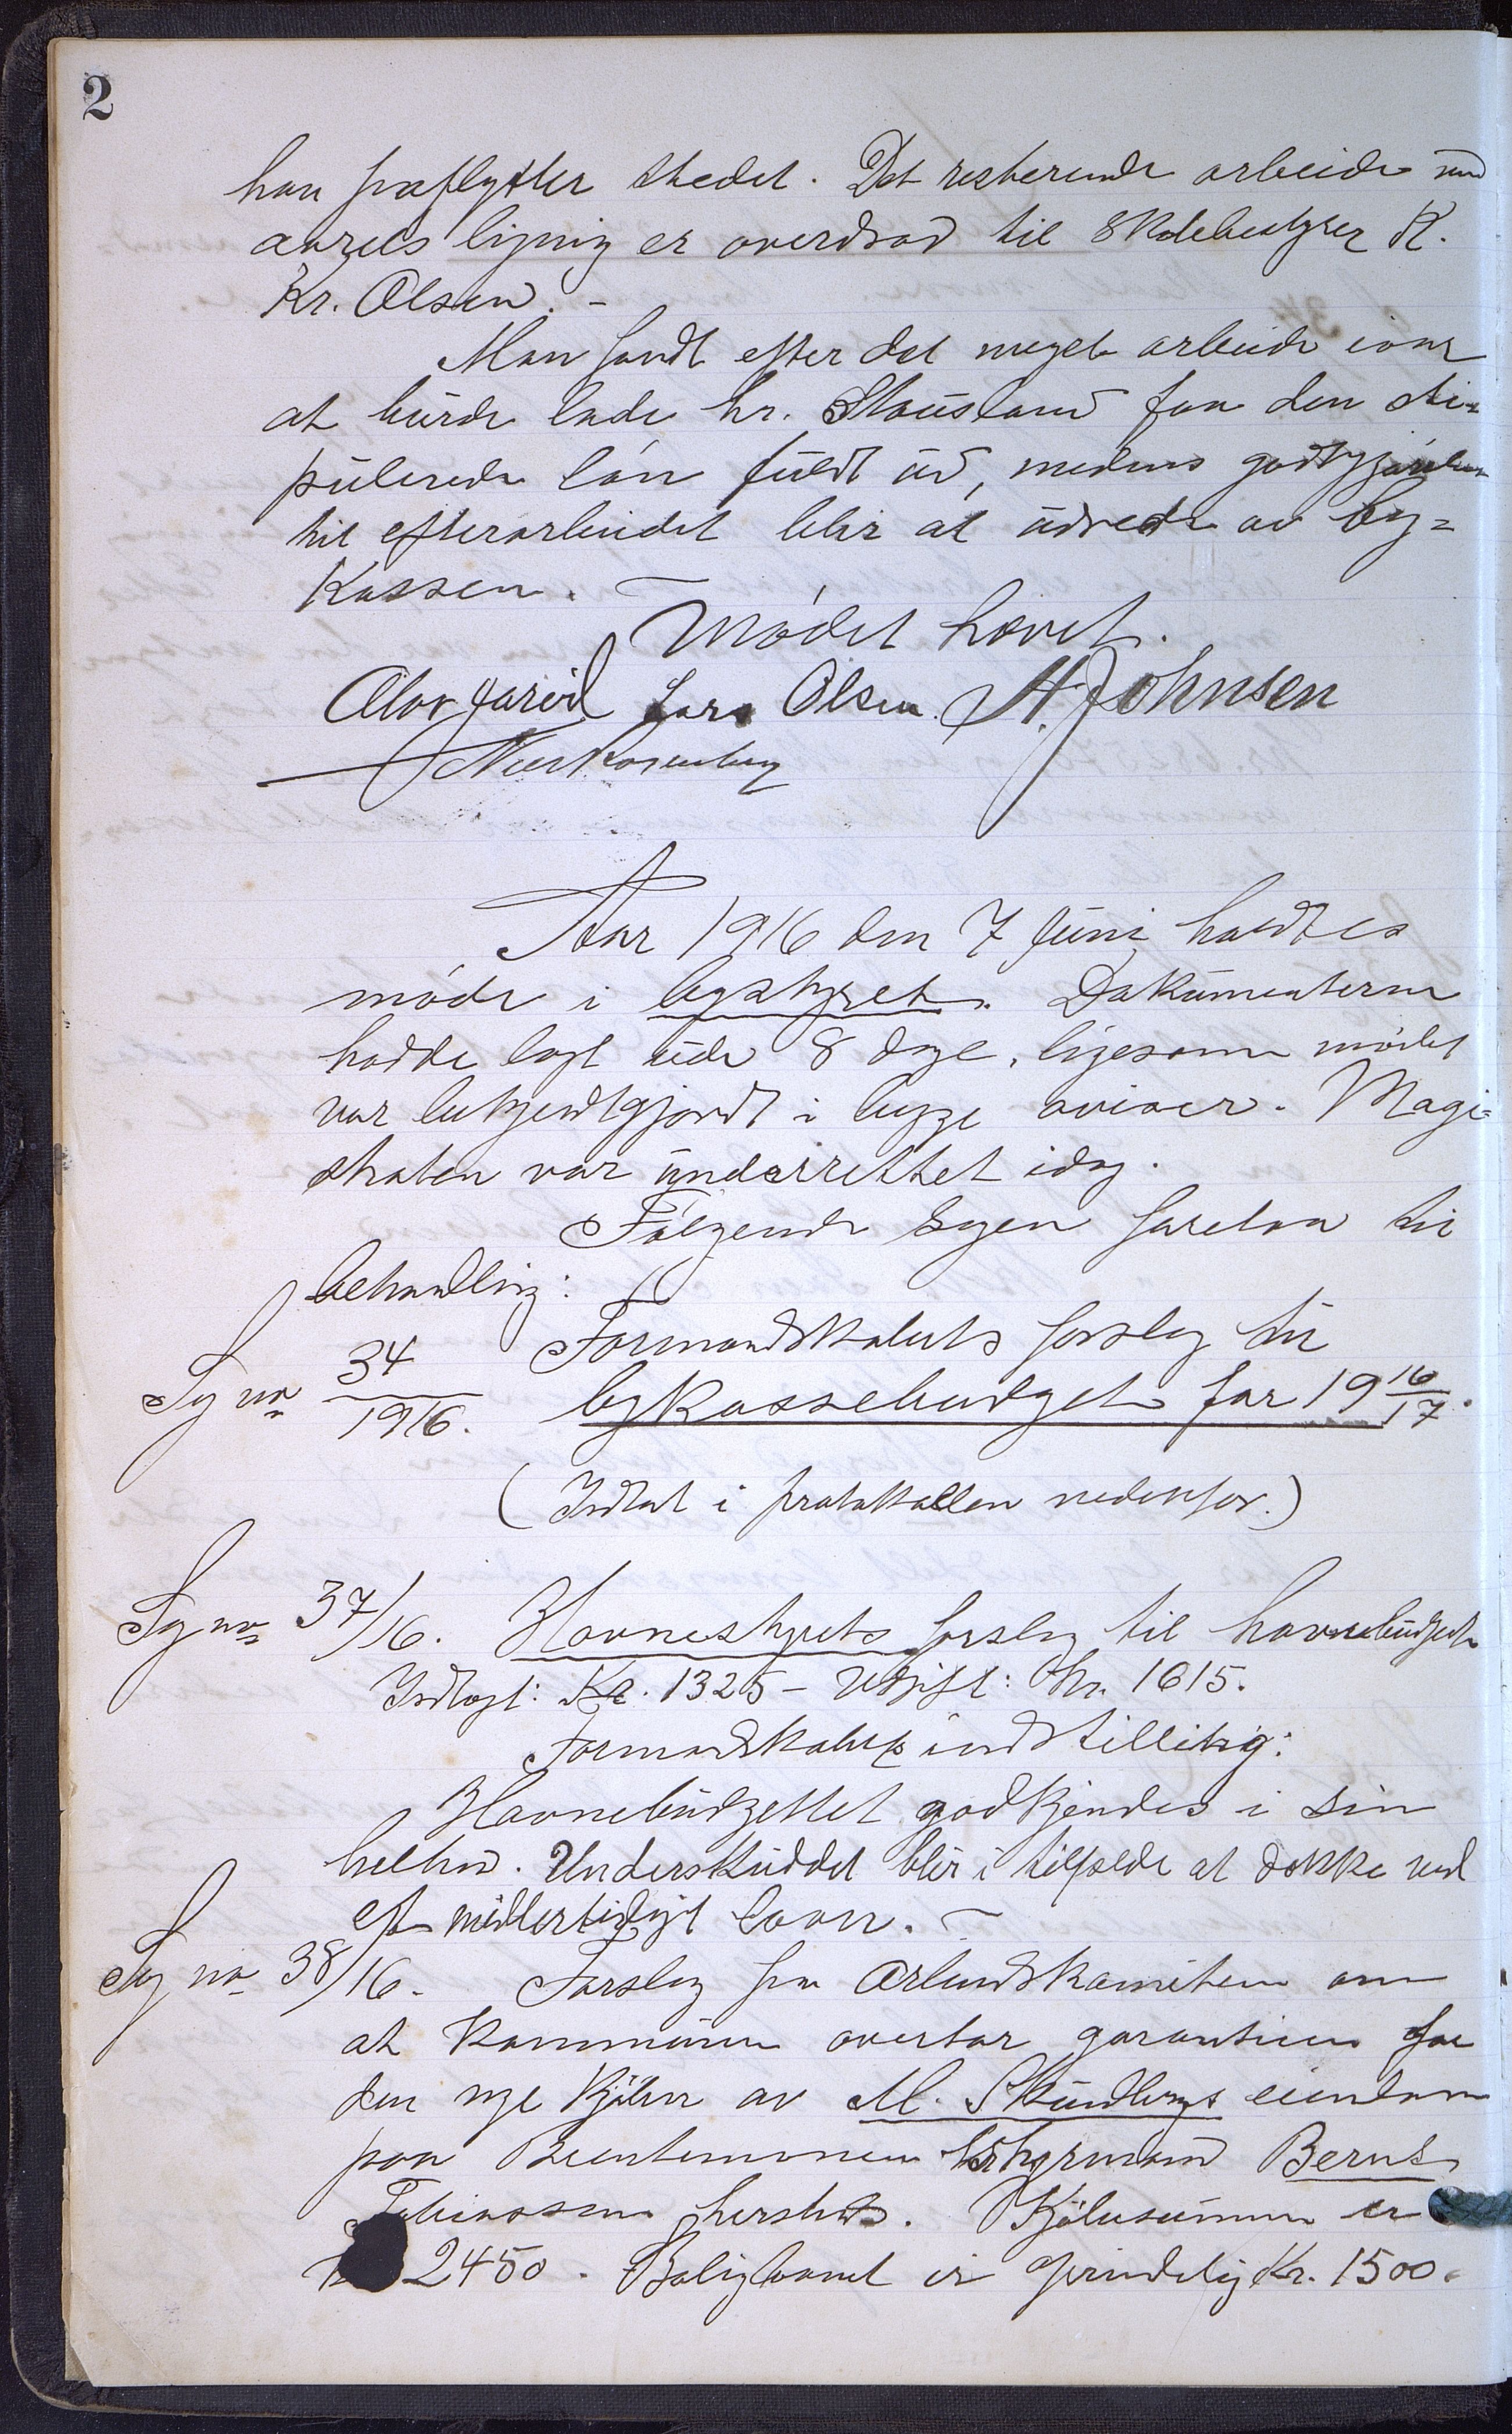 2
han fraflytter stedet. Det resterende arbeide med
aarets ligning er overdrad til Skolebestyrer K.
Kr. Olsen. -
Man fandt efter det meget arbeide iaar
at burde lade hr. Stousland faa den sti=
pulerede løn fuldt ud, medens godtgjørelsen
til efterarbeidet blir at udrede av by=
kassen. -
Mødet hævet.
Olav Jareid Lars Olsen. H. Johnsen
Aar 1916 den 7 Juni holdtes
møde i bystyret. Dokumenterne
hadde lagt ude 8 dage, ligesom mødet
var bekjendtgjordt i begge aviser. Magi=
straten var underrettet idag.
Følgende sager foretoes til
behandling:
Formandskabets forslag til
Sag no 34/1916. bykassebudget for 19 16/17.
(Indtat i protokollen nedenfor.)
Sag no 37/16. Havnestyrets forslag til havnebudget
Indtægt: Kr. 1325 - Udgift: Kr. 1615.
Formandskabets indstilling:
Havnebudgettet godkjendes i sin
helhed. Underskuddet blir i tilfælde at dække ved
et midlertidigt laan. -
Sag no 38/16. Forslag fra Arbeidskomiteen om
at kommunen overtar garantien for
den nye kjøber av M. Skundbergs eiendom
paa styrmand Bernt
Tobiassen hersteds. Kjøbesummen er
2450. Boliglaanet er oprindelig Kr. 1500.